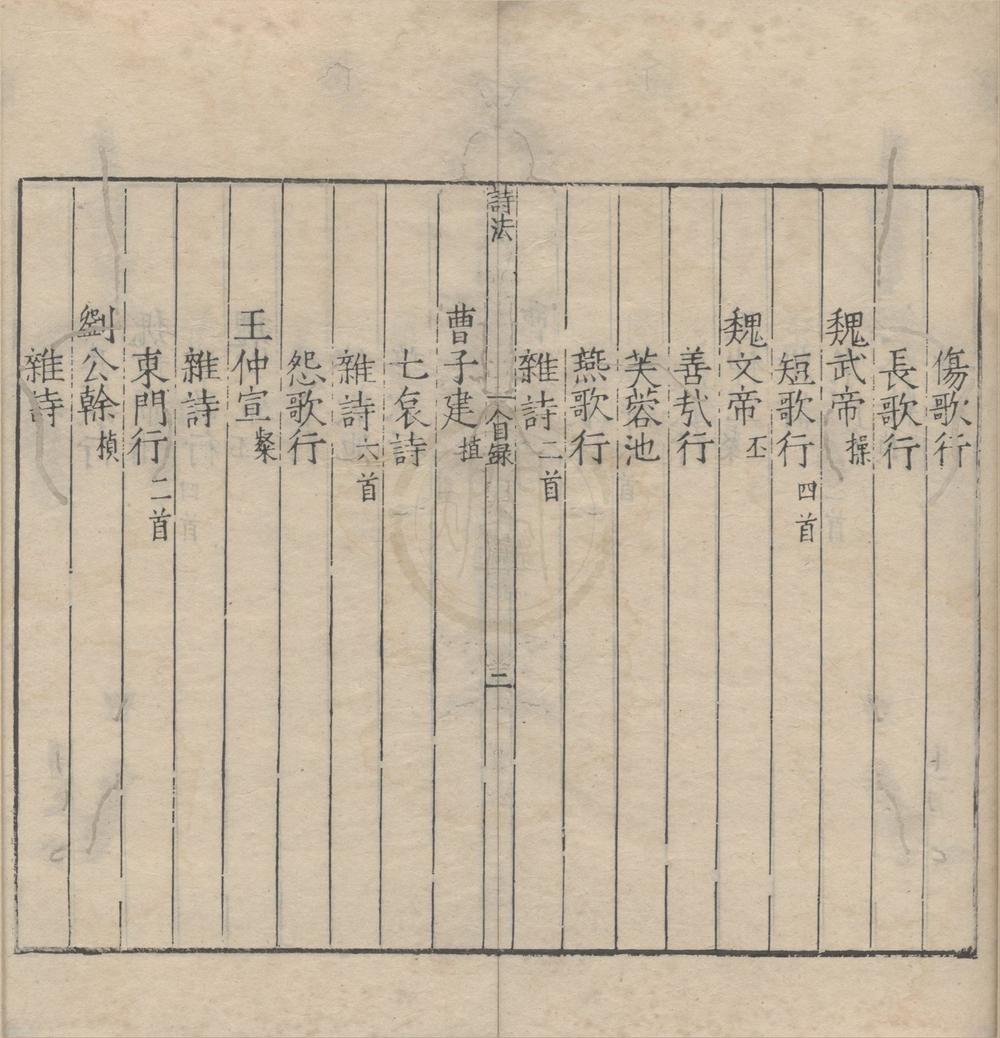 傷歌行
長歌行
魏武帝操
短歌行四首
魏文帝丕
善哉行
芙蓉池
燕歌行
雜詩二首
詩法
目錄
二
曹子建植
七哀詩
雜詩六首
怨歌行
王仲宣粲
雜詩
東門行二首
劉公幹楨
雜詩